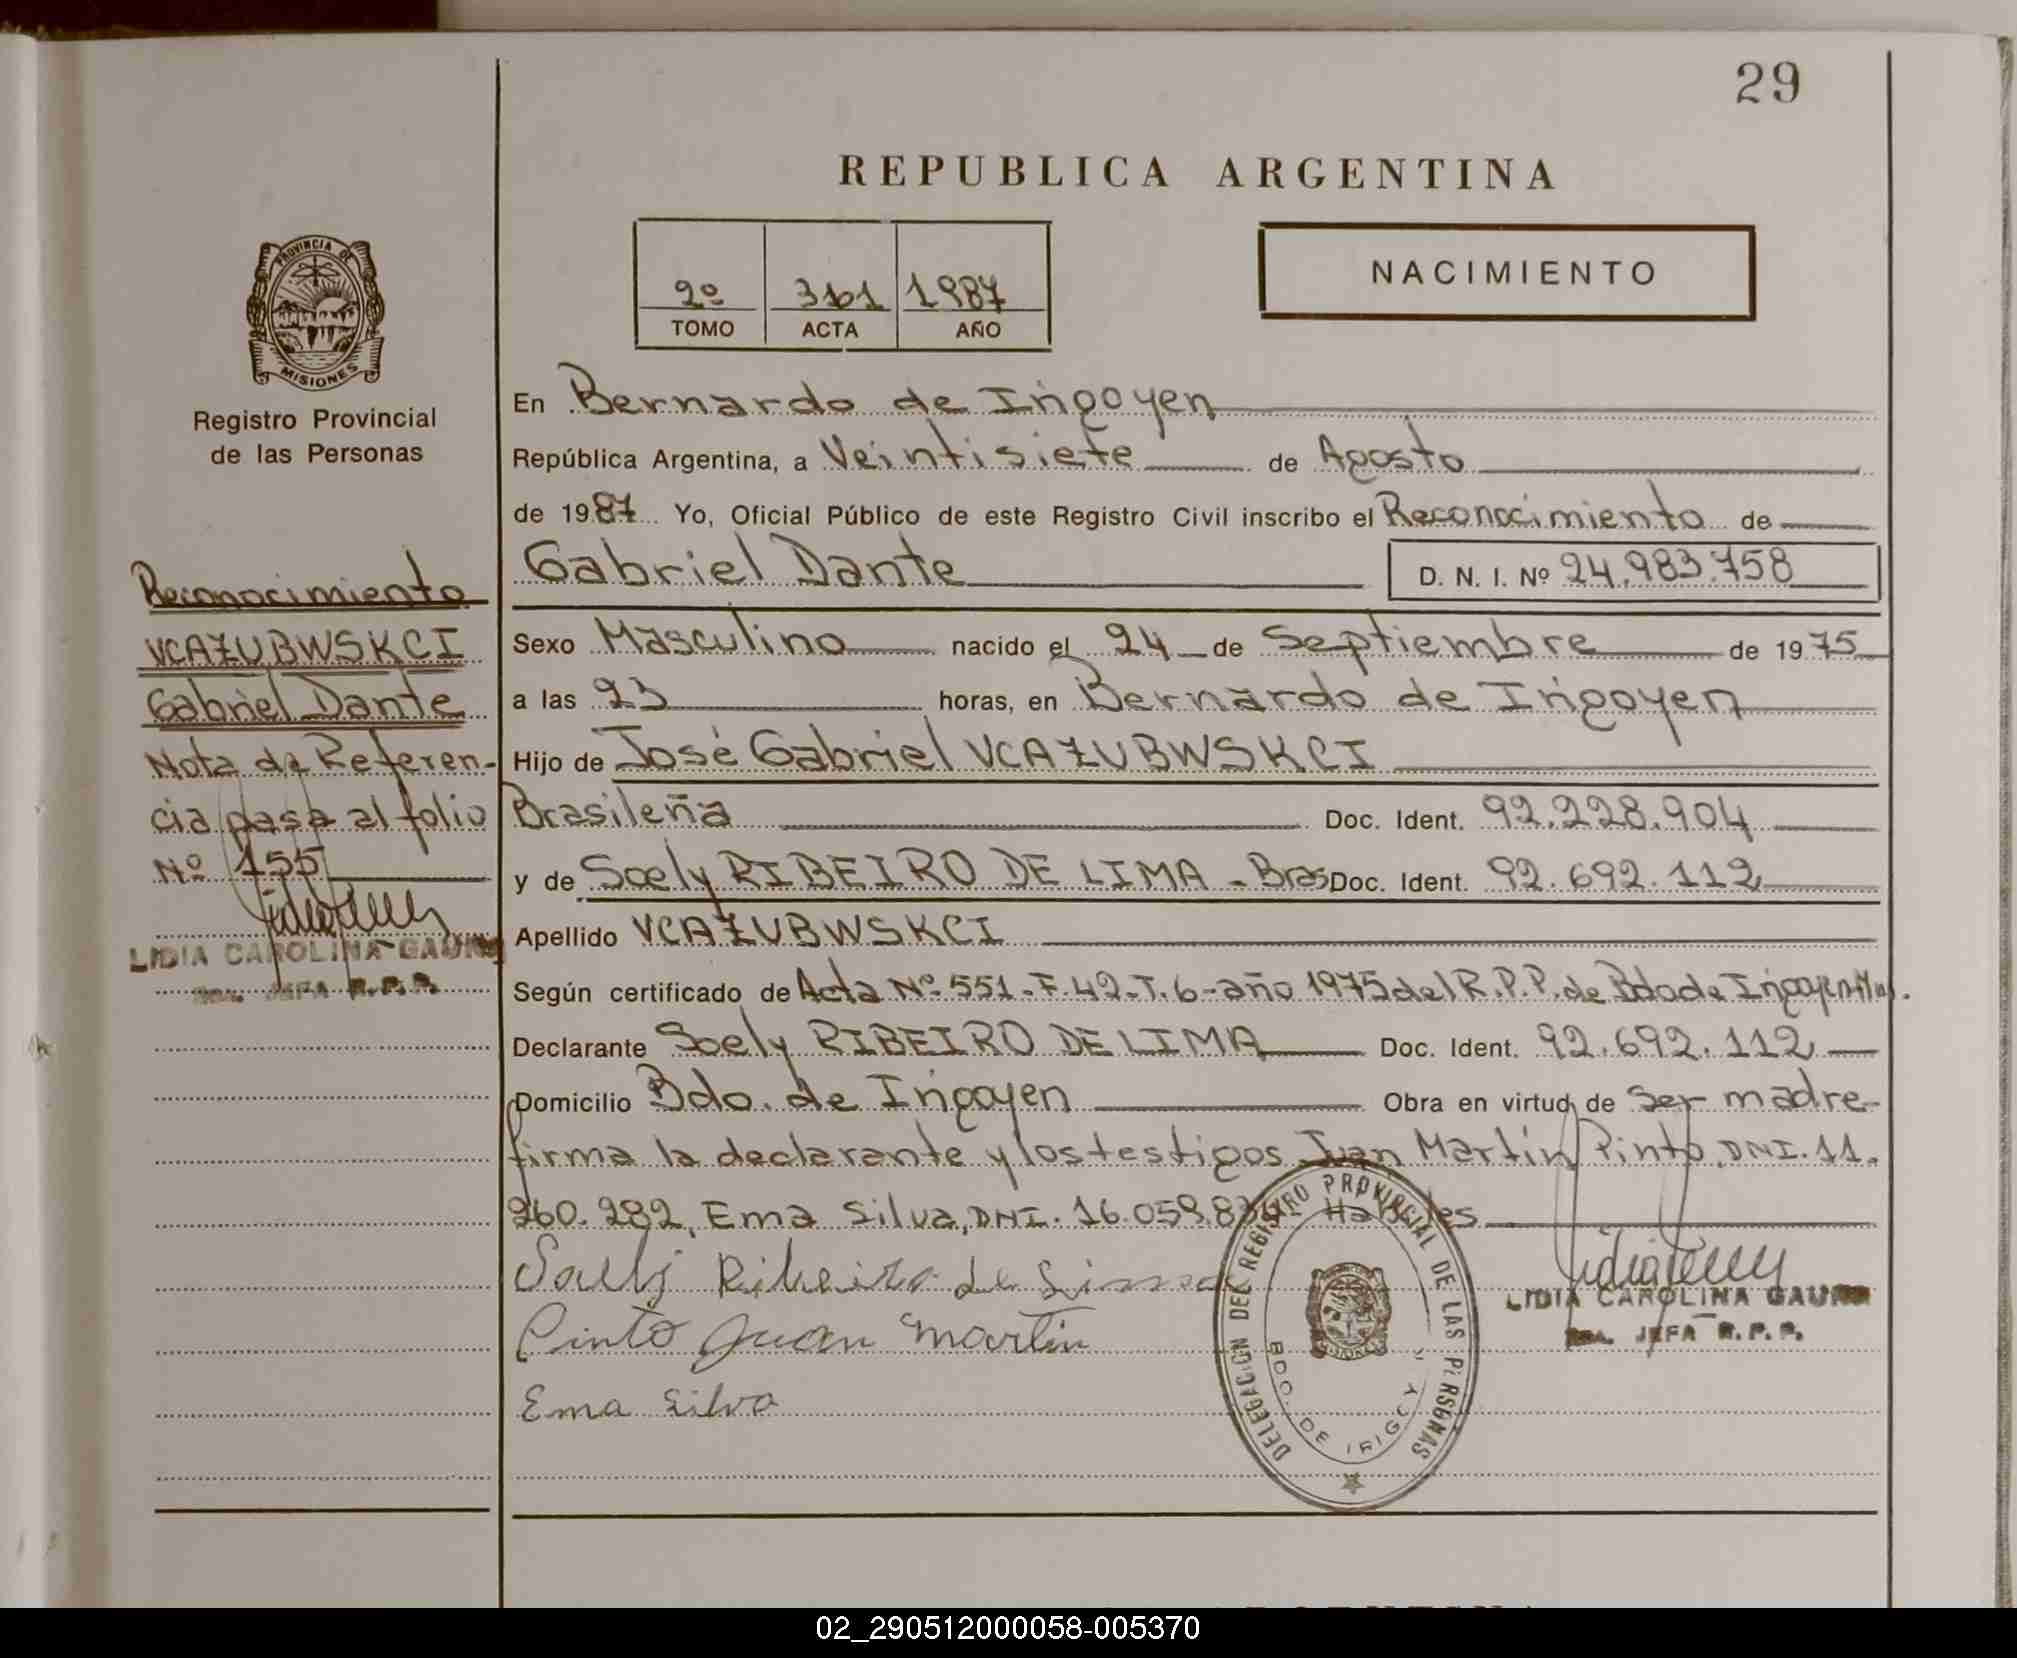 29
REPUBLICA ARGENTINA
2º 1987
TOMO ACTA AÑO
NACIMIENTO
PROVINCIA DE
MISIONES
Registro Provincial
de las Personas
En Bernardo de Irigoyen
República Argentina, a Veintisiete de Agosto
de 1987 Yo, Oficial Público de este Registro Civil inscribo el Reconocimiento de
Gabriel Dante D. N. I. Nº 24.983.758
Sexo Masculino nacido el 24 de Septiembre de 1975
a las 23 horas, en Bernardo de Irigoyen
Hijo de José Gabriel VCAZUBWSKCI
Brasileña Doc. Ident. 92.228.904
y de Soely RIBEIRO DE LIMA - Bras Doc. Ident. 92.692.112
Apellido VCAZUBWSKCI
Según certificado de Acta Nº 551-F.42-T.6-año 1975 del R.P.P. de Bdo de Irigoyen
Declarante Soely RIBEIRO DE LIMA Doc. Ident. 92.692.112
Domicilio Bdo. de Irigoyen Obra en virtud de ser madre-
firma la declarante y los testigos Juan Martín Pinto, DNI. 11.
260.282, Ema Silva, DNI. 16.059.834 Habiles
Soely Ribeiro de Lima
Pinto Juan Martin
Ema Silva
Reconocimiento
VCAZUBWSKCI
Gabriel Dante
Nota de Referen-
cia pasa al folio
Nº 155
LIDIA CAROLINA GAUNA
JEFA R.P.P.
DELEGACION DEL REGISTRO PROVINCIAL DE LAS PERSONAS
BDO. DE IRIGOY
LIDIA CAROLINA GAUNA
JEFA R.P.P.
02_290512000058-005370